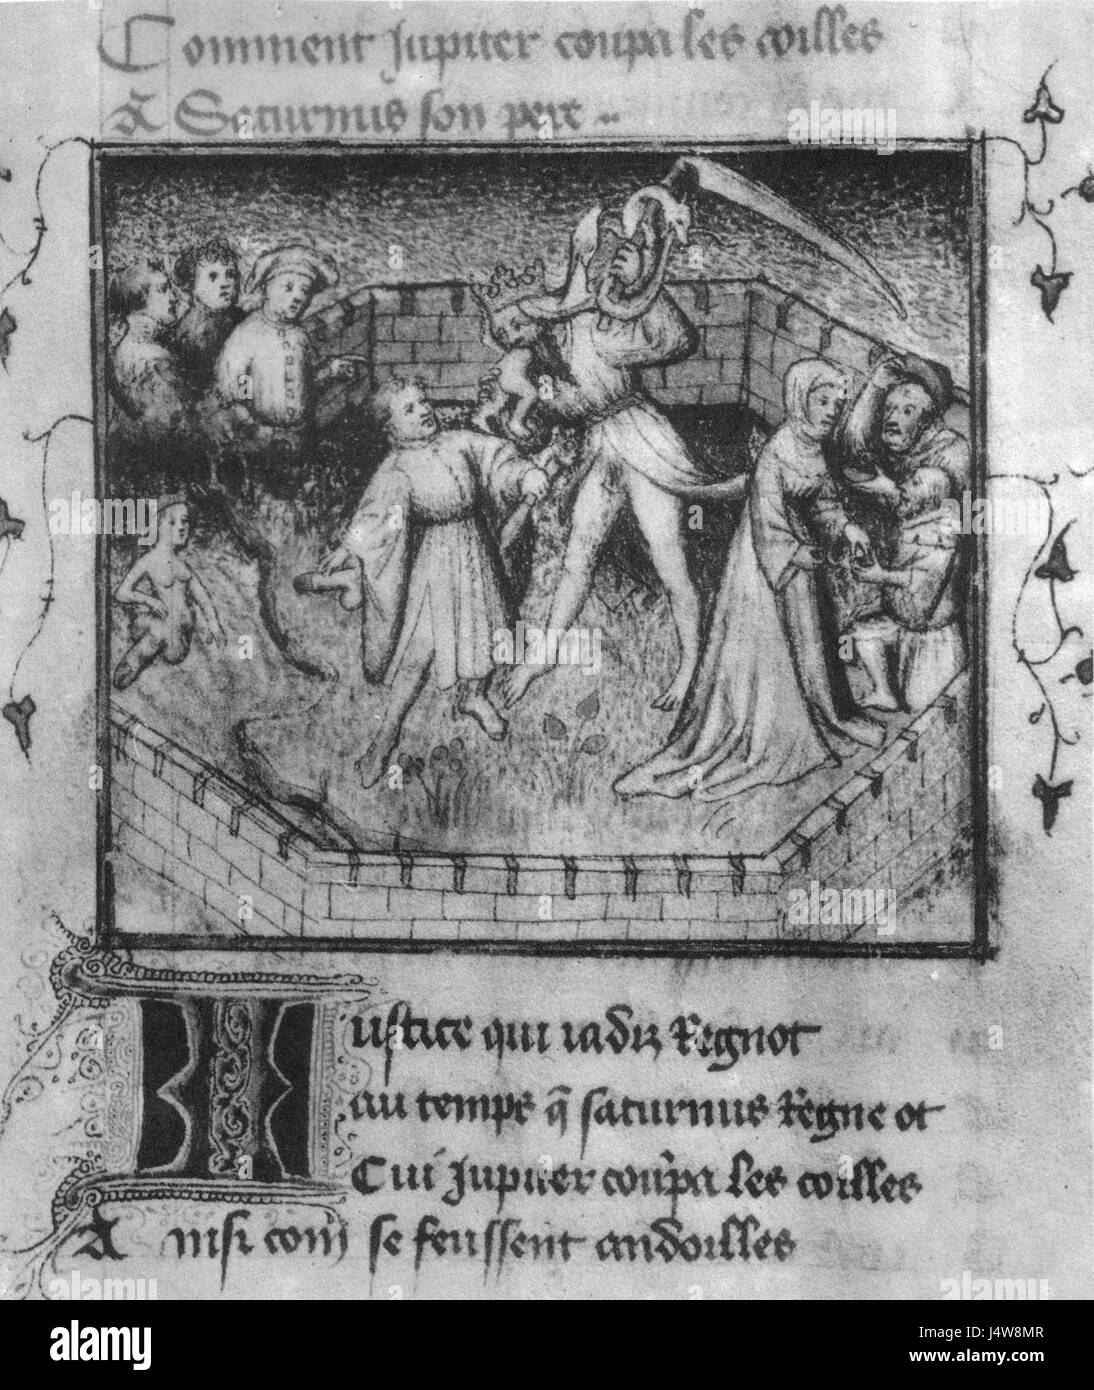 Comment Jupiter coupa les coilles
A Saturnus son pere
Iustice qui iadiz Regnot
au temps q̃ saturnus Regne ot
Cui Jupiter coup̃a les coilles
Ansi com̃ se feussent andoilles
alamy
Image ID: J4W8MR
www.alamy.com